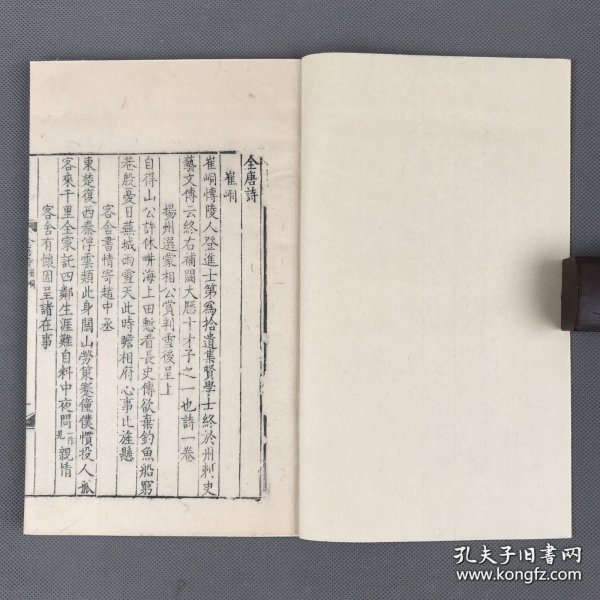 全唐詩
崔峒
崔峒博陵人登進士第爲拾遺集賢學士終於州刺史
藝文傳云終右補闕大曆十才子之一也詩一卷
揚州選蒙相公賞判雪後呈上
自得山公許休耕海上田慙看長史傳欲棄釣魚船窮
巷殷憂日蕪城雨雪天此時瞻相府心事比旌懸
客舍書情寄趙中丞
東楚復西秦浮雲類此身關山勞策蹇僮僕慣投人孤
客來千里全家託四鄰生涯難自料中夜問一作見親情
客舍有懷因呈諸在事
孔夫子旧书网
www.kongfz.com